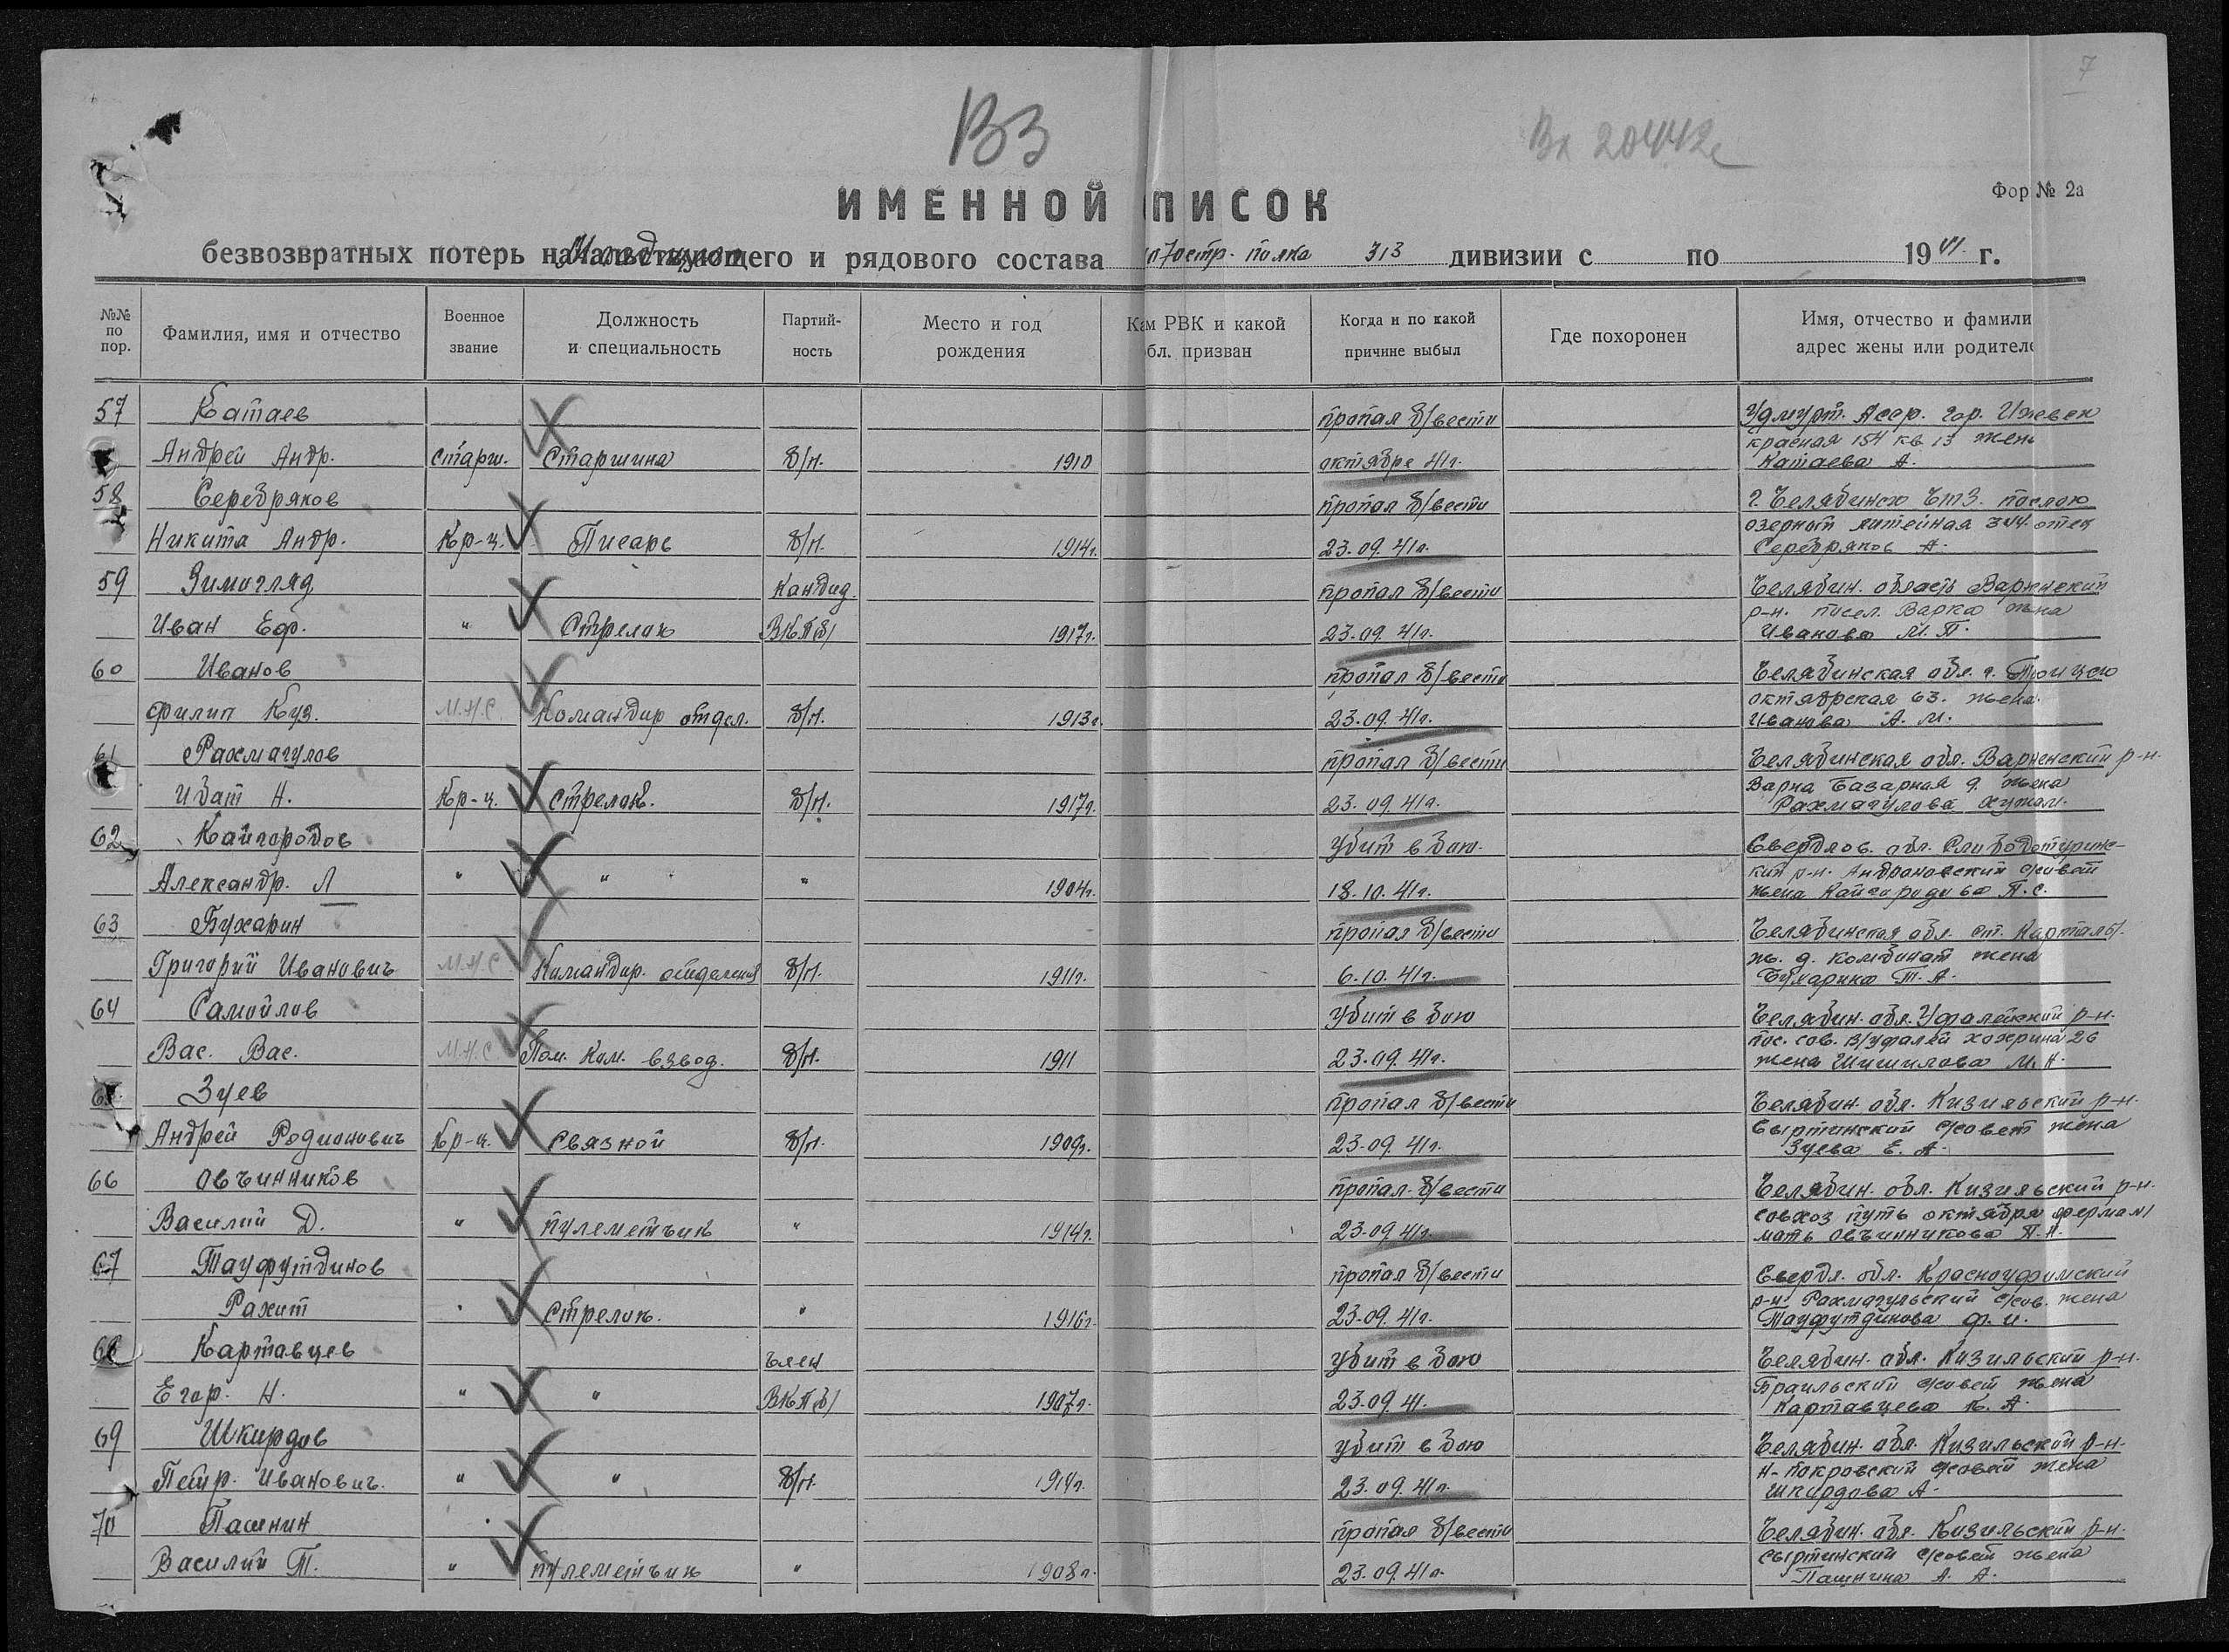 7
ВЗ
Вх 20442с
ИМЕННОЙ ПИСОК
Фор № 2а
безвозвратных потерь начальствующего и рядового состава 1070 стр. полка 313 дивизии с по 1941 г.
№№ по пор. Фамилия, имя и отчество Военное звание Должность и специальность Партий- ность Место и год рождения Ка м РВК и какой бл. призван Когда и по какой причине выбыл Где похоронен Имя, отчество и фамили адрес жены или родител
57 Катаев пропал б/вести Удмурт. Асср. гор. Ижевск
красная 154 кв 13 жен
Андрей Андр. старш. Старшина б/п. 1910 октябре 41г. Катаева А.
58 Серебряков пропал б/вести г. Челябинск ЧТЗ. поселок
озерный литейная 344 отец
Никита Андр. Кр-ц. Писарь б/п. 1914г. 23.09.41г. Серебряков А.
59 Зимогляд Кандид. пропал б/вести Челябин. область Варненский
р-н. посел. Варна жена
Иван Еф. " Стрелок ВКП/б/ 1917г. 23.09.41г. Иванова М.П.
60 Иванов пропал б/вести Челябинская обл. г. Троицк
октябрская 63. жена.
Филип Куз. М.Н.С Командир отдел. б/п. 1913г. 23.09.41г. Иванова А. М.
61 Рахмагулов пропал б/вести Челябинская обл. Варненский р-н.
Варна Базарная 9. жена
Ибат Н. Кр-ц. стрелок. б/п. 1917г. 23.09.41г. Рахмагулова
62 Кайгородов убит в бою. Свердлов. обл. Слободотурин-
кий р-н. Андроновский с/совет
Александр. Л " " " " 1904г. 18.10.41г. жена Кайгородова П.С.
63 Бухарин пропал б/вести Челябинская обл. ст. Карталы.
ж. д. комбинат жена
Григорий Иванович М.Н.С Командир. отделения б/п. 1911г. 6.10.41г. Бухарина Т. А.
64 Самойлов убит в бою Челябин. обл. Уфалейский р-н.
пос. сов. В/уфалей 26
Вас. Вас. М.Н.С Пом. Ком. взвод. б/п. 1911 23.09.41г. жена Шишилова М.Н.
65 Зуев пропал б/вести Челябин. обл. Кизильский р-н.
Сыртинский с/совет жена
Андрей Родионович Кр-ц. связной б/п. 1909г. 23.09.41г. Зуева Е. А.
66 Овчинников пропал б/вести Челябин. обл. Кизильский р-н.
совхоз путь октября ферма №1
Василий Д. " пулеметчик " 1914г. 23.09.41г. мать Овчинникова П.Н.
67 Тауфутдинов пропал б/вести Свердл. обл. Красноуфимский
р-н. Рахмагульский с/сов. жена
Рахит " стрелок. " 1916г. 23.09.41г. Тауфутдинова Ф. И.
68 Картавцев член убит в бою Челябин. обл. Кизильский р-н.
Браильский с/совет жена
Егор. Н. " " ВКП/б/ 1907г. 23.09.41. Картавцева К. А.
69 Шкирдов убит в бою Челябин. обл. Кизильский р-н.
Н-Покровский с/совет жена
Петр. Иванович. " " б/п. 1914г. 23.09.41г. Шкирдова А.
70 Пашнин пропал б/вести Челябин. обл. Кизильский р-н.
Сыртинский с/совет жена
Василий Т. " пулеметчик " 1908г. 23.09.41г. Пашнина А. А.